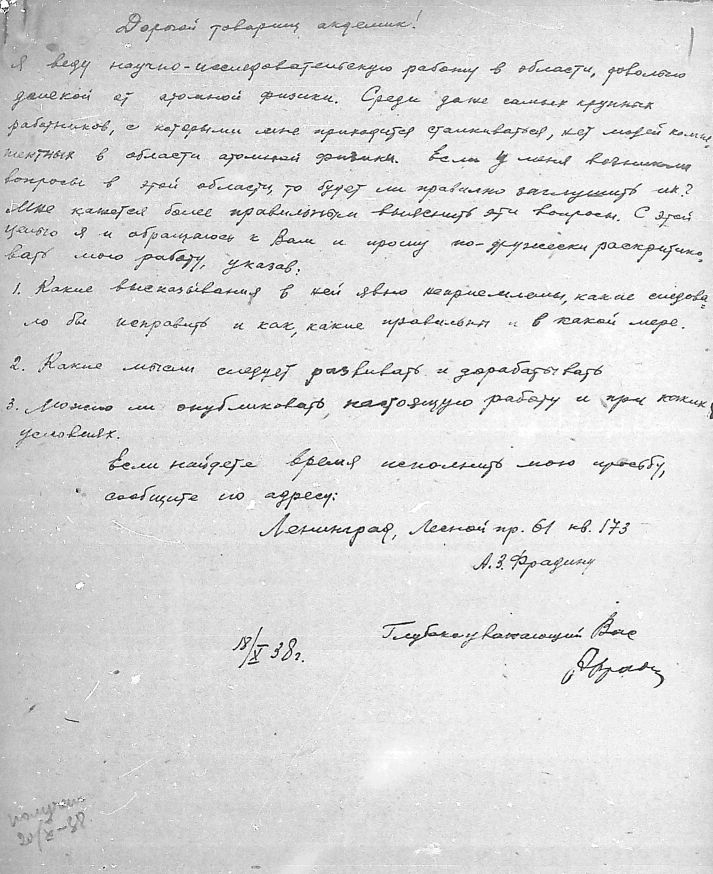 Дорогой товарищ академик!
Я веду научно-исследовательскую работу в области, довольно
далекой от атомной физики. Среди даже самых крупных
работников, с которыми мне приходится сталкиваться, нет людей компе-
тентных в области атомной физики. Если у меня возникли
вопросы в этой области, то будет ли правильно заглушить их?
Мне кажется более правильным выяснить эти вопросы. С этой
целью я и обращаюсь к Вам и прошу по-дружески раскритико-
вать мою работу, указав:
1. Какие высказывания в ней явно неприемлемы, какие следова-
ло бы исправить и как, какие правильны и в какой мере.
2. Какие мысли следует развивать и дорабатывать
3. Можно ли опубликовать настоящую работу и при каких
условиях.
Если найдете время исполнить мою просьбу,
сообщите по адресу:
Ленинград, Лесной пр. 61 кв. 173
А.З. Фрадину
Глубокоуважающий Вас
18/X 38 г.
получено
20/X-38